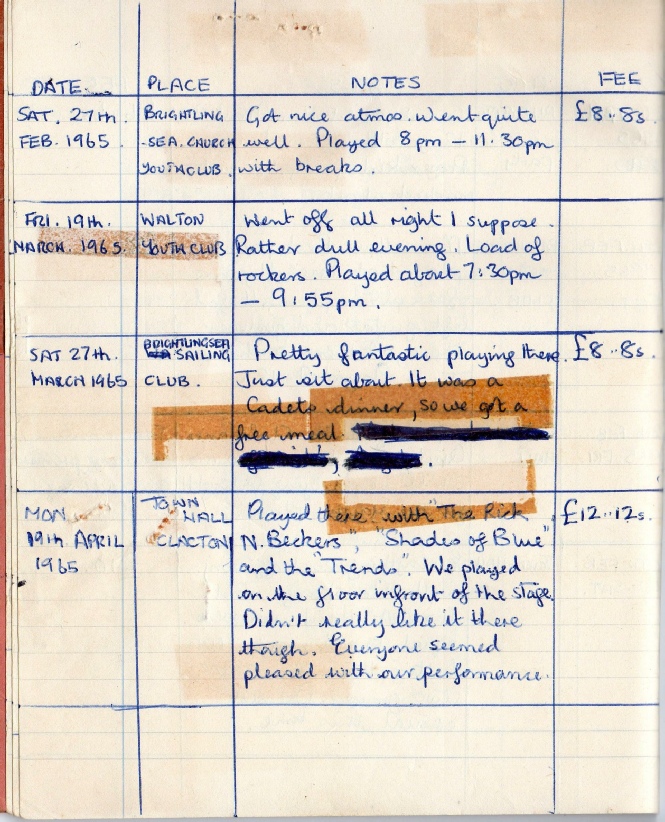 DATE PLACE NOTES FEE
SAT. 27th. BRIGHTLING Got nice atmos. Went quite £8..8s.
FEB. 1965 -SEA. CHURCH well. Played 8pm – 11.30pm
YOUTHCLUB. with breaks.
FRI. 19th. WALTON Went off all right I suppose.
MARCH. 1965. YOUTH CLUB Rather dull evening. Load of
rockers. Played about 7:30pm
– 9:55pm.
BRIGHTLINGSEA Pretty fantastic playing there. £8..8s.
SAT 27th. SAILING Just sit about. It was a
MARCH 1965 CLUB. Cadets dinner, so we got a
free meal
TOWN Played there with "The Rick £12..12s.
MON HALL N. Beckers", "Shades of Blue"
19th APRIL CLACTON and the "Trends". We played
1965 on the floor infront of the stage.
Didn't really like it there
though. Everyone seemed
pleased with our performance.